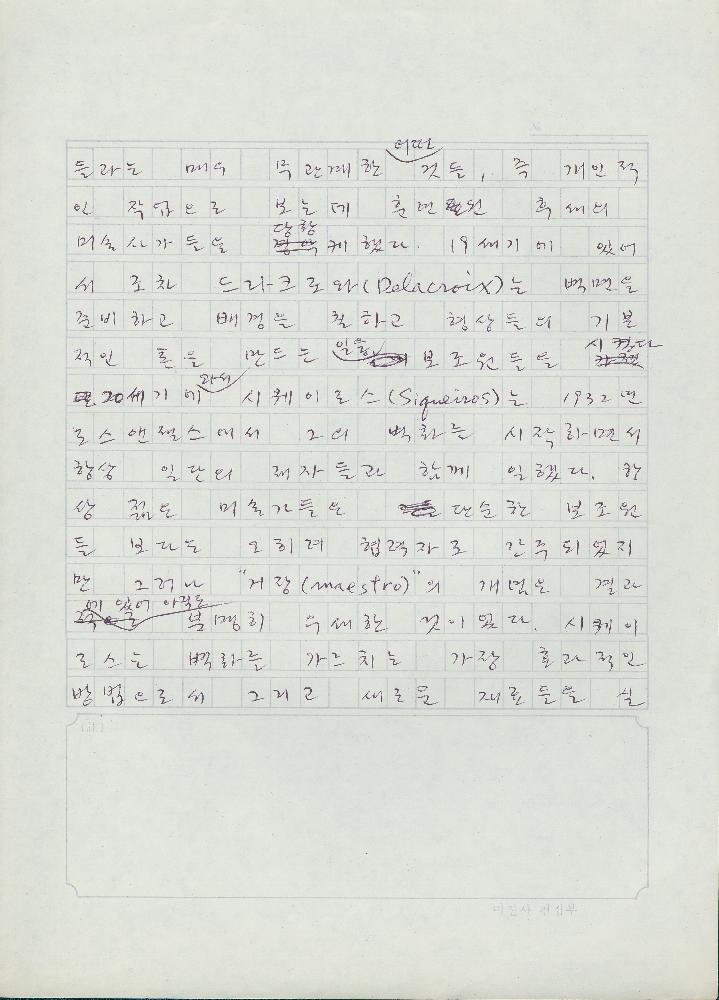 들과는 매우 무관계한 어떤 것들, 즉 개인적
인 작업으로 보는데 훈련된 후세의
미술사가들을 당황케 했다. 19세기에 있어
서 조차 드라크로와(Delacroix)는 벽면을
준비하고 배경을 칠하고 형상들의 기본
적인 흔을 만드는 일을 보조원들을 시켰다
20세기에 와서 시퀘이로스(Siqueiros)는 1932년
로스앤젤스에서 그의 벽화를 시작하면서
항상 일단의 제자들과 함께 일했다. 항
상 젊은 미술가들은 단순한 보조원
들 보다는 오히려 협력자로 간주되었지
만 그러나 "거장(maestro)"의 개념은 결과
에 있어 아직도 분명히 우세한 것이었다. 시퀘이
로스는 벽화를 가르치는 가장 효과적인
방법으로서 그리고 새로운 재료들을 실
(註)
미진사 편집부